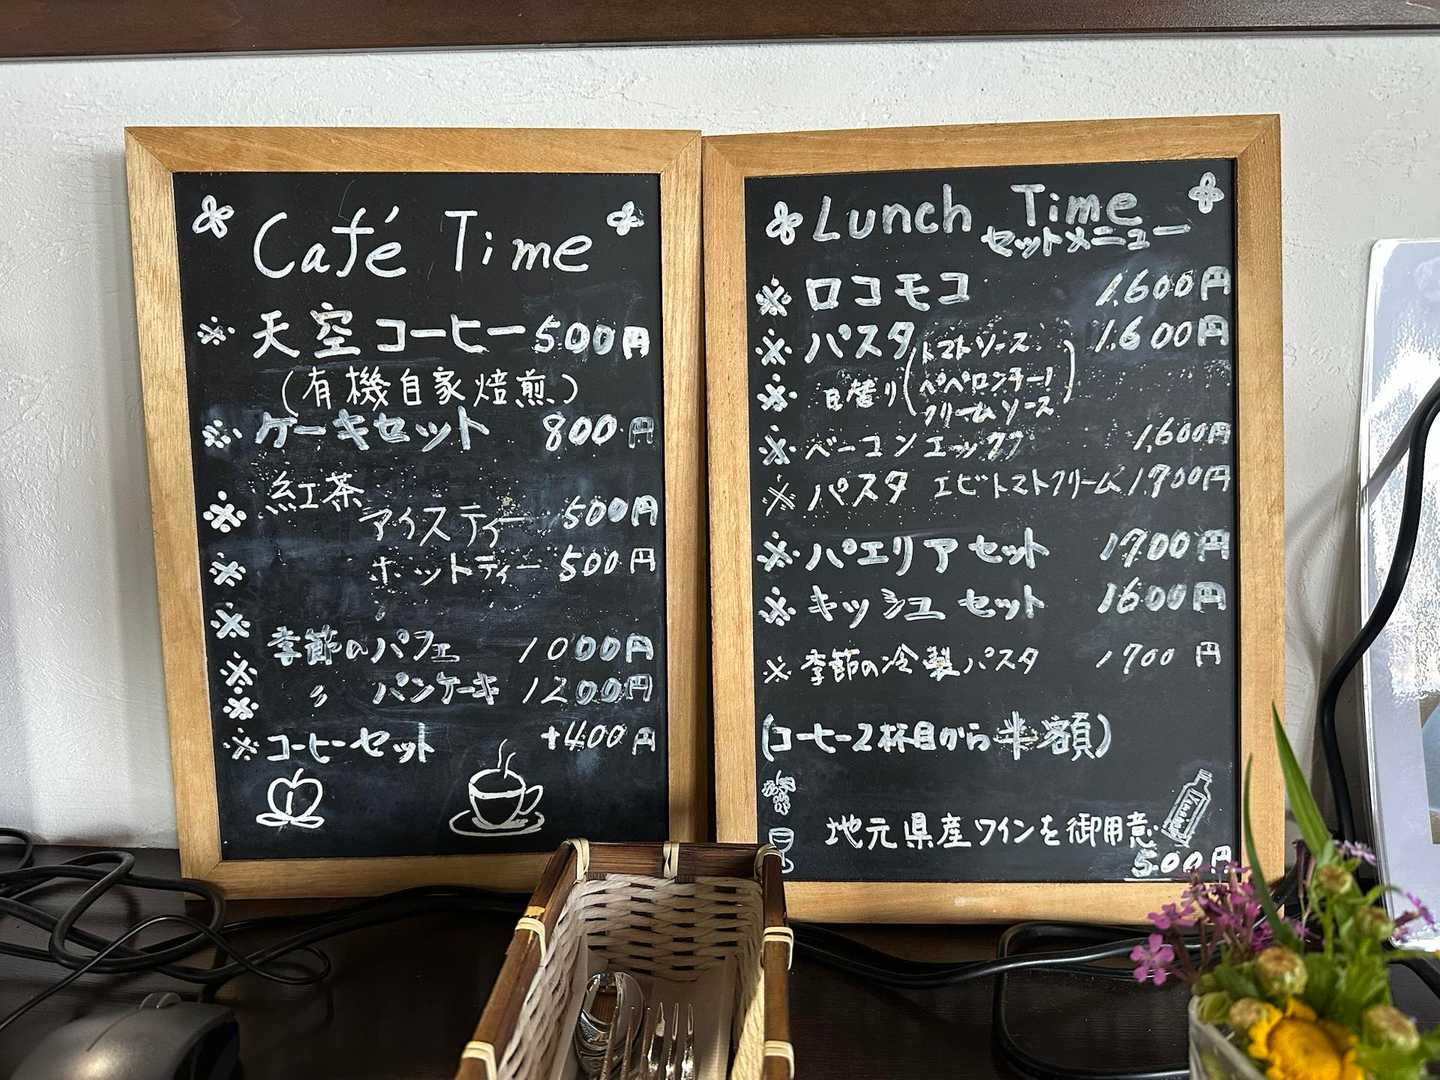 Café Time
※ 天空コーヒー 500円
(有機自家焙煎)
※ ケーキセット 800円
紅茶
※ アイスティー 500円
※ ホットティー 500円
※ 季節のパフェ 1000円
※ 〃 パンケーキ 1200円
※ コーヒーセット +400円
Lunch Time
セットメニュー
※ ロコモコ 1.600円
※ パスタ 1.600円
トマトソース
※ 日替り ペペロンチーノ
クリームソース
※ ベーコンエッグ 1,600円
※ パスタ エビトマトクリーム 1.700円
※ パエリアセット 1700円
※ キッシュセット 1600円
※ 季節の冷製パスタ 1700円
(コーヒー2杯目から半額)
地元県産ワインを御用意
500円